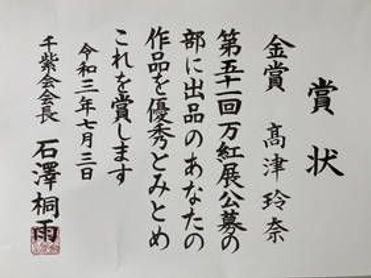 賞状
金賞 髙津玲奈
第五十一回万紅展公募の
部に出品のあなたの
作品を優秀とみとめ
これを賞します
令和三年七月三日
千紫会会長 石澤桐雨